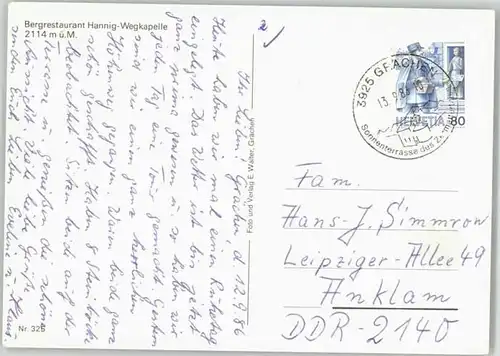 Bergrestaurant Hannig-Wegkapelle
2114 m ü.M.
Ihr Lieben! Grächen, d. 12.9.86
Heute haben wir mal einen Ruhetag
eingelegt. Das Wetter ist bis jetzt
ganz prima gewesen u. so haben wir
jeden Tag eine Tour gemacht. Gestern
sind wir einen ganz herrlichen
Höhenweg gegangen. Waren beide ganz
schön geschafft. Haben 8 Steinböcke
beobachtet. Sitzen beide auf der
Terrasse u. genießen die schöne
Fernsicht. Viele liebe Grüße
senden Euch Lieben Eveline u. Klaus
Nr. 325
Foto und Verlag E. Walter, Grächen
3925 GRÄCHEN
13.9.86
Sonnenterrasse des Zermatt
HELVETIA 80
Fam.
Hans-J. Simmrow
Leipziger-Allee 49
Anklam
DDR-2140